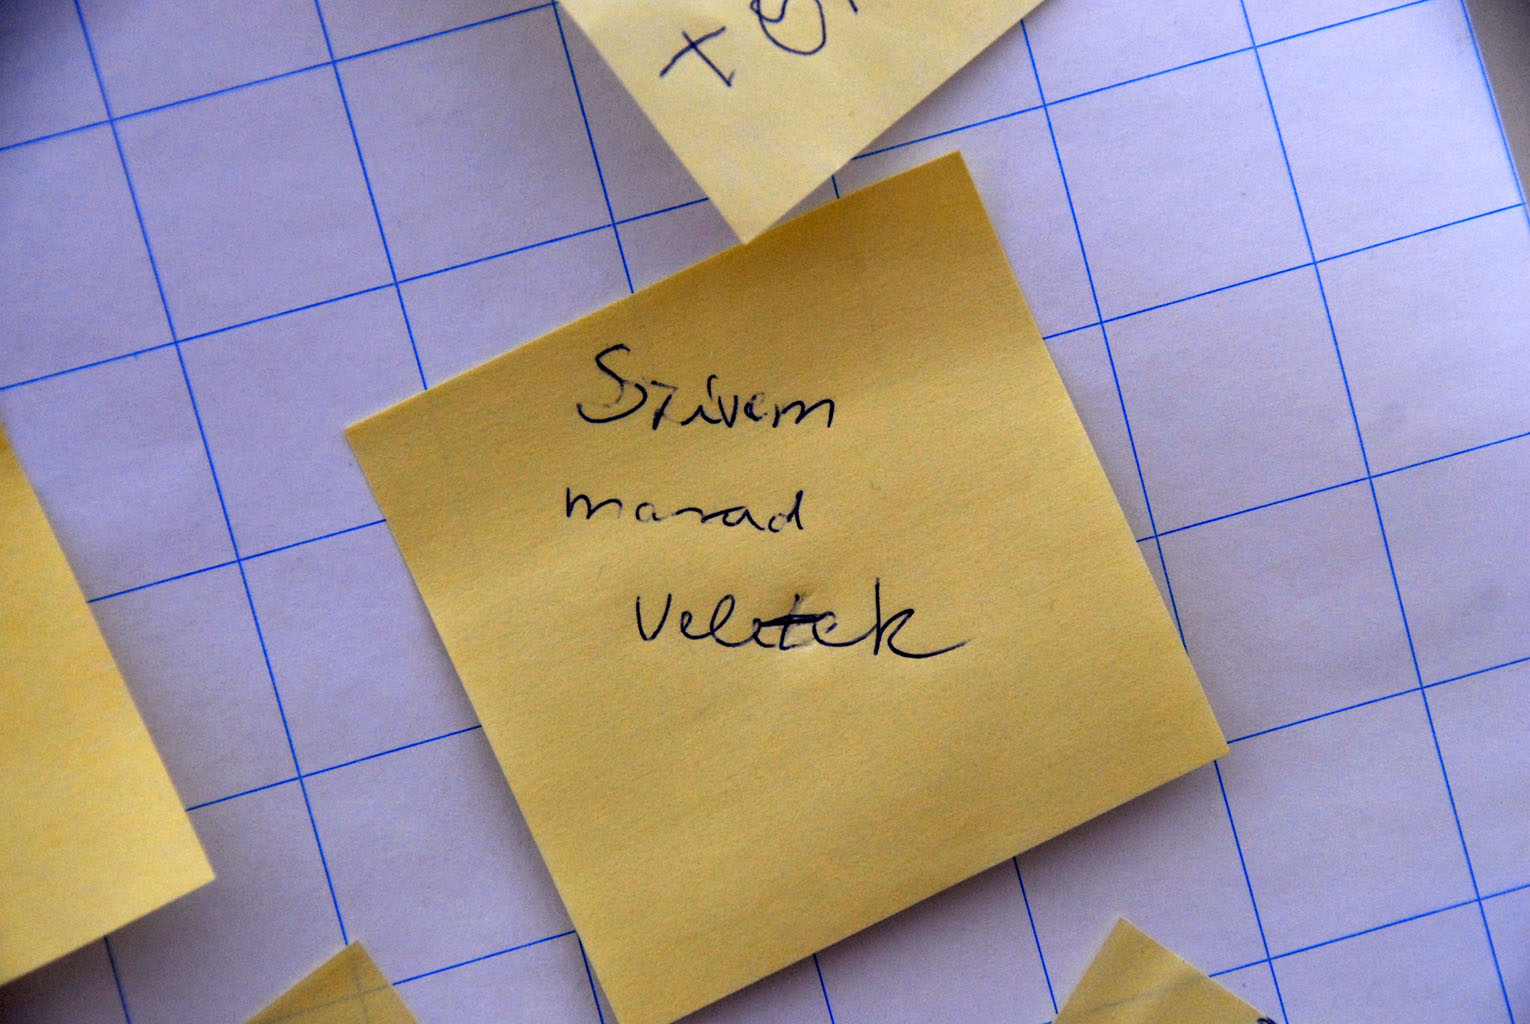 Szivem
marad
Veletek